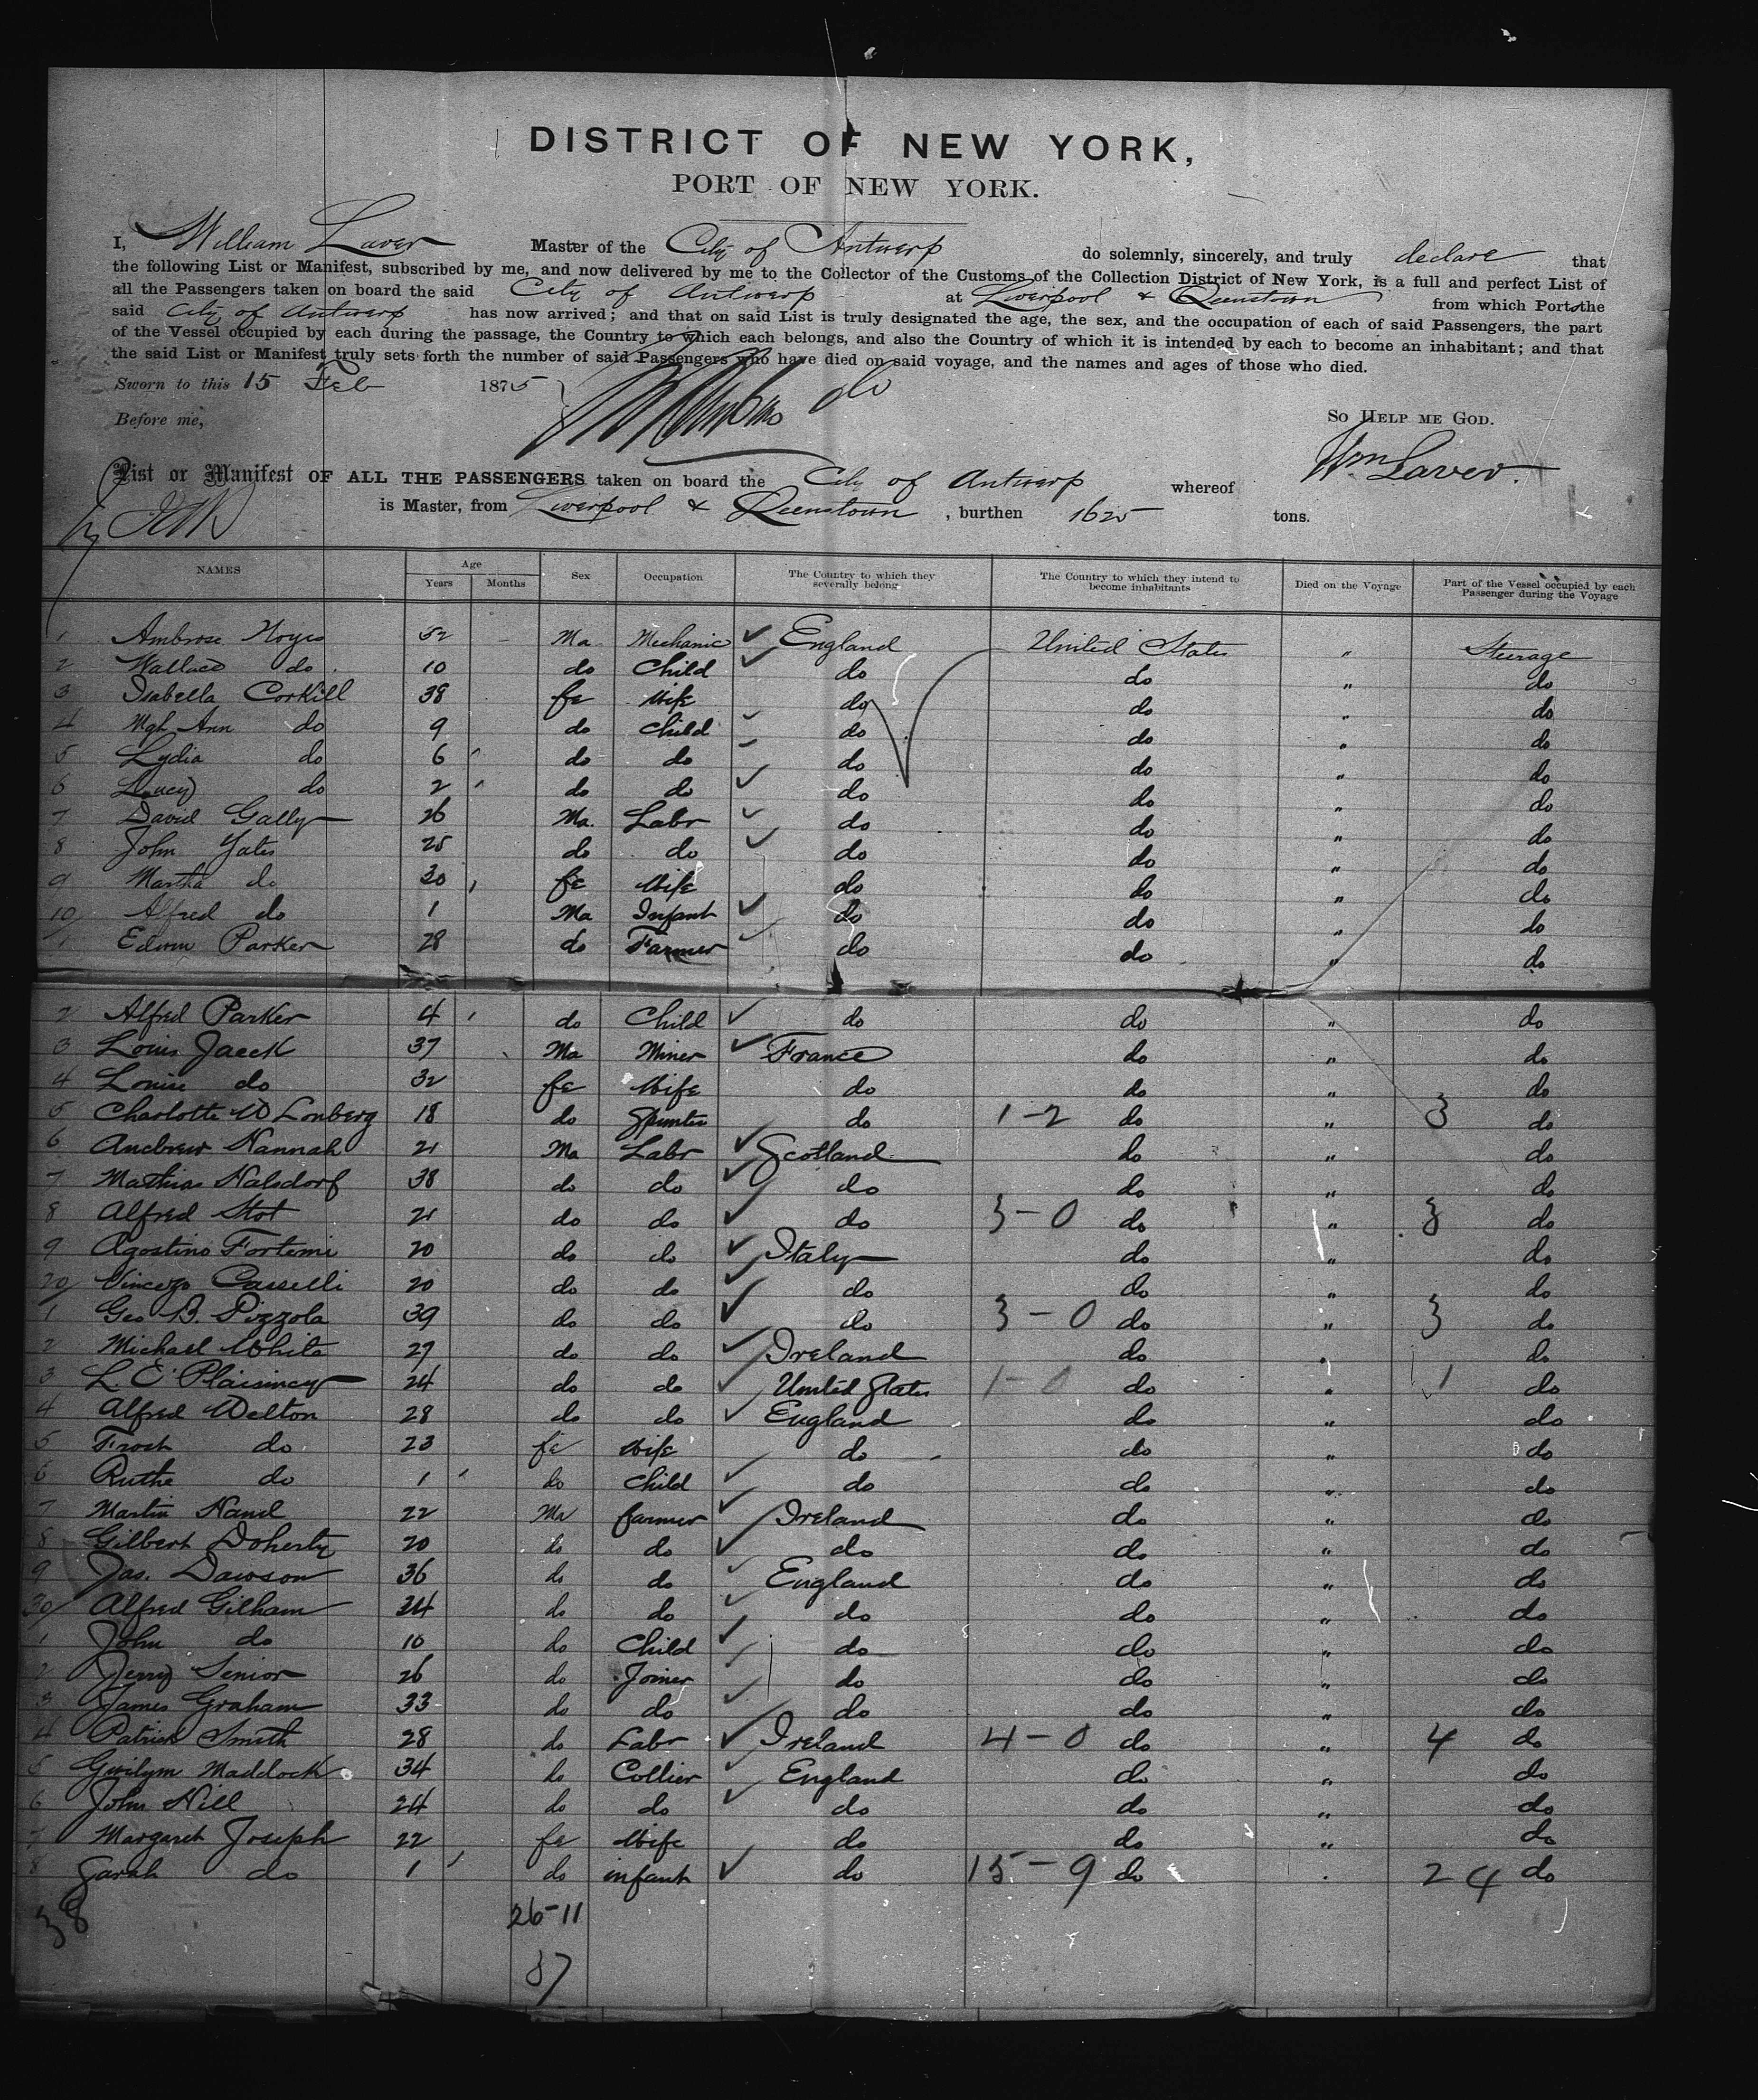 DISTRICT OF NEW YORK,
PORT OF NEW YORK.
I, William Laver Master of the City of Antwerp do solemnly, sincerely, and truly declare that
the following List or Manifest, subscribed by me, and now delivered by me to the Collector of the Customs of the Collection District of New York, is a full and perfect List of
all the Passengers taken on board the said City of Antwerp at Liverpool & Queenstown from which Ports the
said City of Antwerp has now arrived; and that on said List is truly designated the age, the sex, and the occupation of each of said Passengers, the part
of the Vessel occupied by each during the passage, the Country to which each belongs, and also the Country of which it is intended by each to become an inhabitant; and that
the said List or Manifest truly sets forth the number of said Passengers who have died on said voyage, and the names and ages of those who died.
Sworn to this 15 Feb 1875
Before me, So Help me God.
Wm Laver.
List or Manifest OF ALL THE PASSENGERS taken on board the City of Antwerp whereof
is Master, from Liverpool & Queenstown, burthen 1625 tons.
NAMES Age Years Months Sex Occupation The Country to which they severally belong The Country to which they intend to become inhabitants Died on the Voyage Part of the Vessel occupied by each Passenger during the Voyage
1 Ambrose Noyes 52 - Ma Mechanic England United States " Steerage
2 Wallace do 10 do Child do do " do
3 Isabella Corkill 38 fe Wife do do " do
4 Mgt Ann do 9 do Child do do " do
5 Lydia do 6 do do do do " do
6 Lucy do 2 do do do do " do
7 David Gally 26 Ma. Labr do do " do
8 John Yates 25 do do do do " do
9 Martha do 30 fe Wife do do " do
10 Alfred do 1 Ma Infant do do " do
1 Edwin Parker 28 do Farmer do do " do
2 Alfred Parker 4 do Child do do " do
3 Louis Jaeck 37 Ma Miner France do " do
4 Louise do 32 fe Wife do do " do
5 Charlotte W Lonberg 18 do Spinster do 1-2 do " 3 do
6 Andrew Hannah 21 Ma Labr Scotland do " do
7 Mathias Halsdorf 38 do do do do " do
8 Alfred Stot 21 do do do 3-0 do " 3 do
9 Agostino Fortini 20 do do Italy do " do
20 Vincezo Casselli 20 do do do do " do
1 Geo B. Pizzola 39 do do do 3-0 do " 3 do
2 Michael White 29 do do Ireland do " do
3 L. E. Plaisincy 24 do do United States 1-0 do " 1 do
4 Alfred Welton 28 do do England do " do
5 do 23 fe Wife do do " do
6 Ruthe do 1 do Child do do " do
7 Martin Hand 22 Ma farmer Ireland do " do
8 Gilbert Doherty 20 do do do do " do
9 Jas. Dawson 36 do do England do " do
30 Alfred Gilham 34 do do do do " do
1 John do 10 do Child do do " do
2 Jerry Senior 26 do Joiner do do " do
3 James Graham 33 do do do do " do
4 Patrick Smith 28 do Labr Ireland 4-0 do " 4 do
5 Gwilym Maddock 34 do Collier England do " do
6 John Hill 24 do do do do " do
7 Margaret Joseph 22 fe Wife do do " do
8 Sarah do 1 do infant do 15-9 do 24 do
38 26-11
37